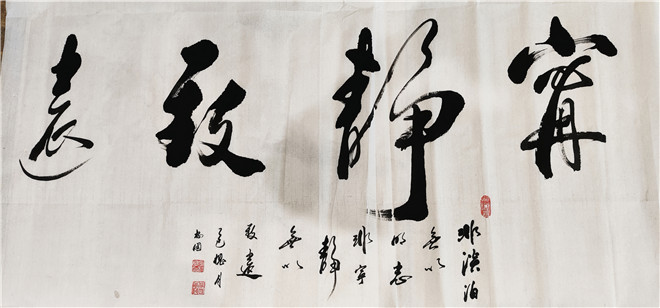 寧靜致遠
非淡泊
無以
明志
非寧
靜
無以
致遠